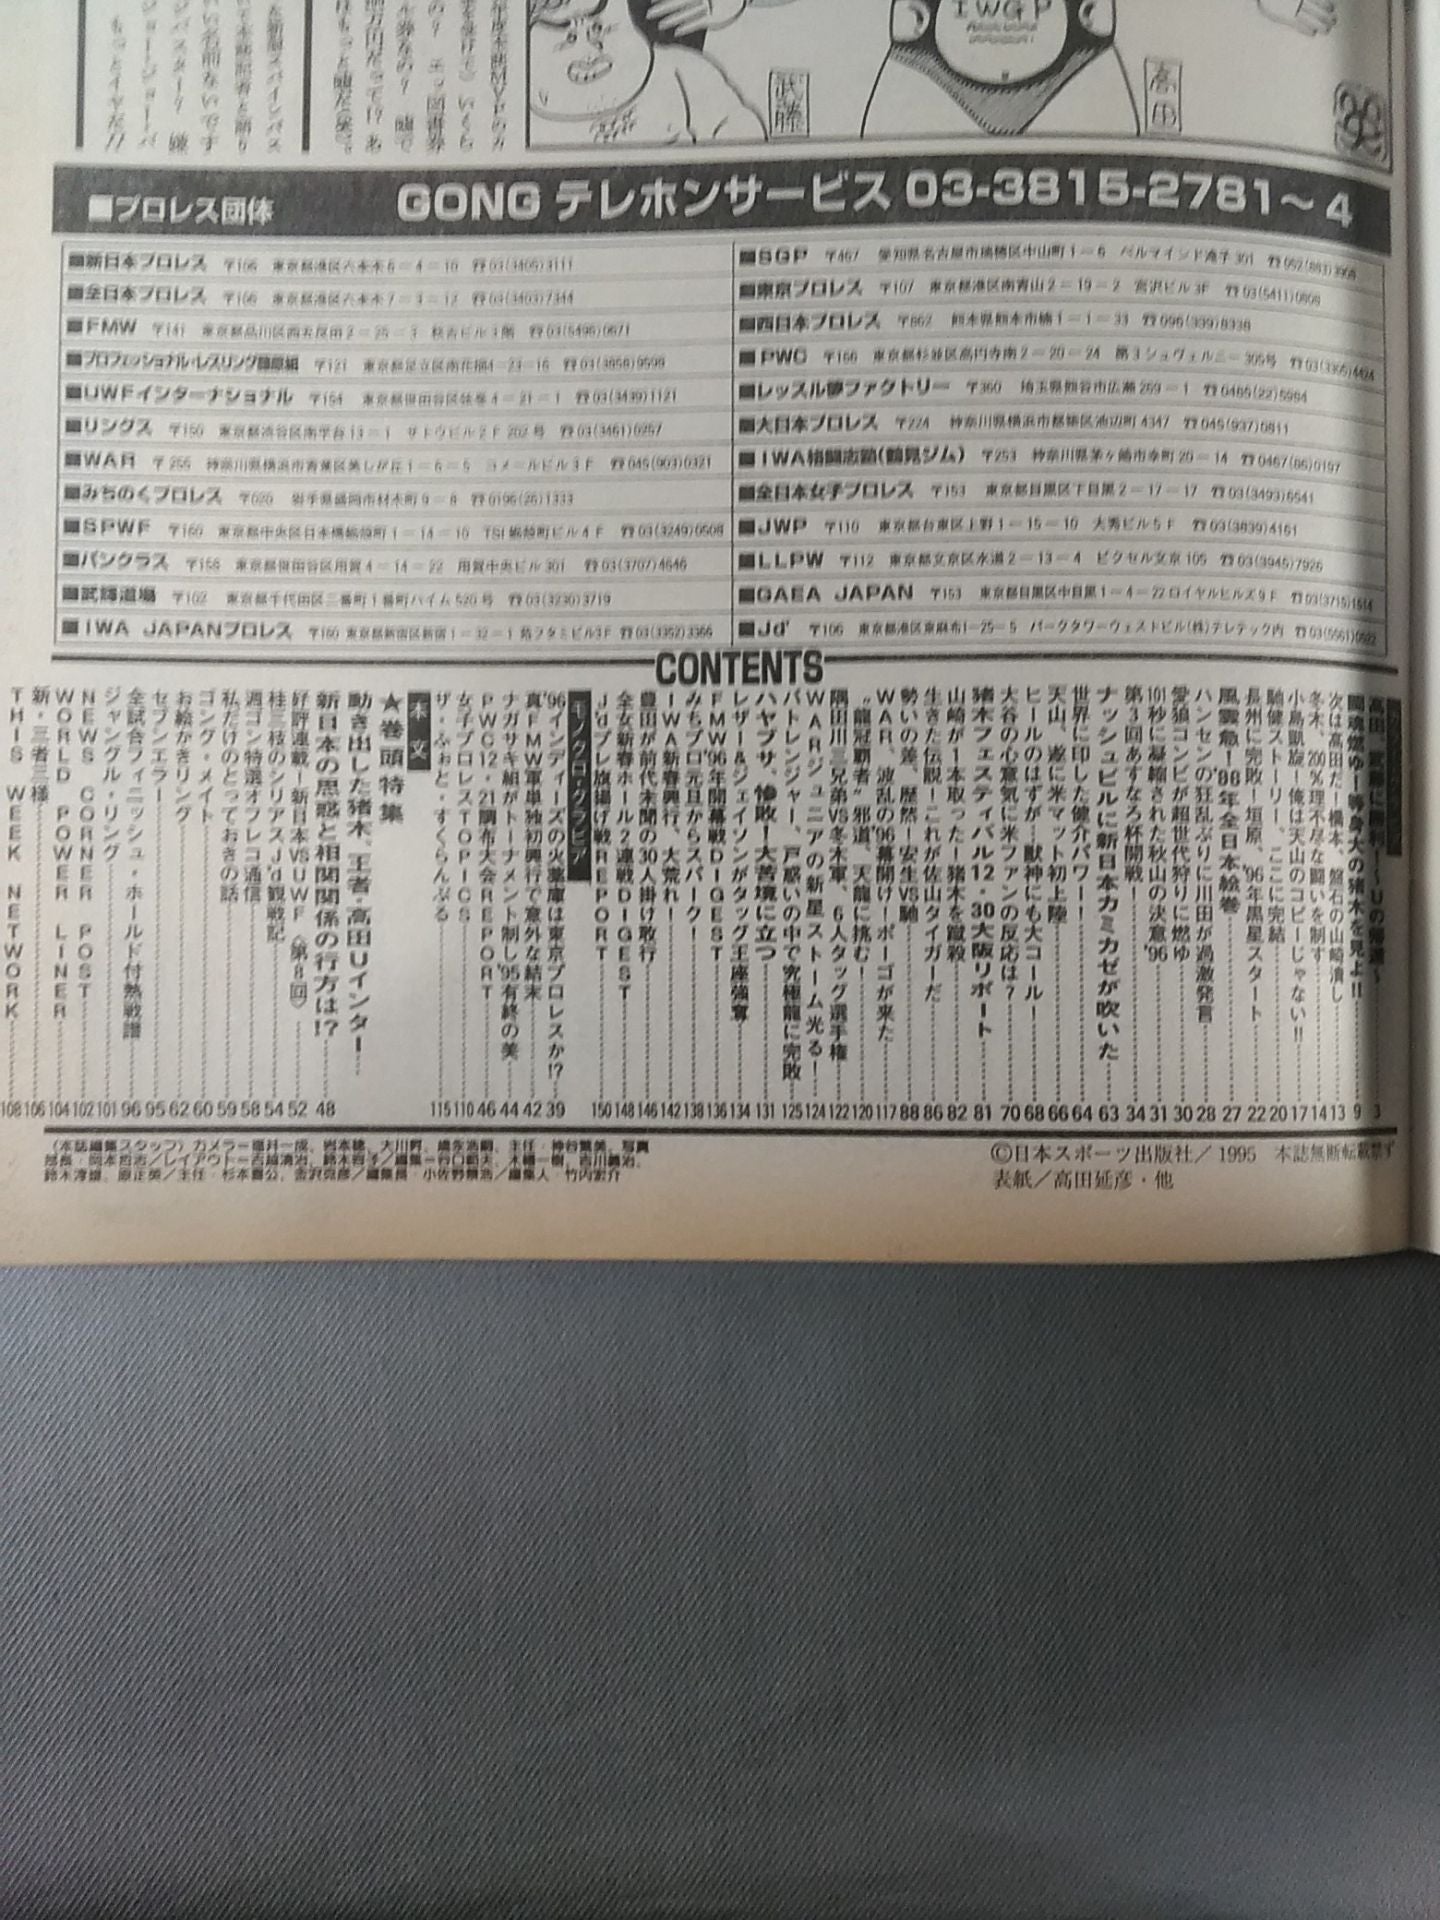 IWGP
武藤
高田
■プロレス団体 GONG テレホンサービス 03-3815-2781〜4
■新日本プロレス 〒106 東京都港区六本木6-4-10 ☎03(3405)3111
■全日本プロレス 〒106 東京都港区六本木7-3-12 ☎03(3403)7344
■FMW 〒141 東京都品川区西五反田2-25-3 ☎03(5496)0671
■プロフェッショナル・レスリング藤原組 〒121 東京都足立区南花畑4-23-16 ☎03(3858)9599
■UWFインターナショナル 〒154 東京都世田谷区弦巻4-21-1 ☎03(3439)1121
■リングス 〒150 東京都渋谷区南平台13-1 サトウビル2F 202号 ☎03(3461)0257
■WAR 〒255 神奈川県横浜市青葉区美しが丘1-6-5 ヨメールビル3F ☎045(903)0321
■みちのくプロレス 〒020 岩手県盛岡市材木町9-8 ☎0196(26)1333
■SPWF 〒160 東京都中央区日本橋蛎殻町1-14-10 TSI蛎殻町ビル4F ☎03(3249)0508
■パンクラス 〒158 東京都世田谷区用賀4-14-22 用賀中央ビル301 ☎03(3707)4646
■武輝道場 〒102 東京都千代田区三番町1番町ハイム520号 ☎03(3230)3719
■IWA JAPANプロレス 〒160 東京都新宿区新宿1-32-1 苑フタミビル3F ☎03(3352)3366
■SGP 〒467 愛知県名古屋市瑞穂区中山町1-6 ベルマインド滝子301 ☎052(883)3908
■東京プロレス 〒107 東京都港区南青山2-19-2 宮沢ビル3F ☎03(5411)0808
■西日本プロレス 〒862 熊本県熊本市楠1-1-33 ☎096(339)8338
■PWC 〒166 東京都杉並区高円寺南2-20-24 第3シュヴェルニー305号 ☎03(3305)4424
■レッスル夢ファクトリー 〒360 埼玉県熊谷市広瀬269-1 ☎0485(22)5964
■大日本プロレス 〒224 神奈川県横浜市都筑区池辺町4347 ☎045(937)0811
■IWA格闘志塾(鶴見ジム) 〒253 神奈川県茅ヶ崎市幸町20-14 ☎0467(86)0197
■全日本女子プロレス 〒153 東京都目黒区下目黒2-17-17 ☎03(3493)6541
■JWP 〒110 東京都台東区上野1-15-10 大秀ビル5F ☎03(3839)4161
■LLPW 〒112 東京都文京区水道2-13-4 ピクセル文京105 ☎03(3945)7926
■GAEA JAPAN 〒153 東京都目黒区中目黒1-4-22ロイヤルヒルズ9F ☎03(3715)1514
■Jd' 〒106 東京都港区東麻布1-25-5 パークタワーウェストビル(株)テレテック内 ☎03(5561)0522
CONTENTS
高田、武藤に勝利!〜Uの帰還〜 3
闘魂燃ゆ!等身大の猪木を見よ!! 9
次は高田だ!橋本、盤石の山崎潰し 13
冬木、200%理不尽な闘いを制す 14
小島凱旋!俺は天山のコピーじゃない!! 17
馳健ストーリー、ここに完結 20
長州に完敗!垣原、'96年黒星スタート 22
風雲急!'96年全日本絵巻 27
ハンセンの狂乱ぶりに川田が過激発言 28
愛狼コンビが超世代狩りに燃ゆ 30
101秒に凝縮された秋山の決意'96 31
第3回あすなろ杯開戦! 34
ナッシュビルに新日本カミカゼが吹いた 63
世界に印した健介パワー! 64
天山、遂に米マット初上陸 66
ヒールのはずが…獣神にも大コール! 68
大谷の心意気に米ファンの反応は? 70
猪木フェスティバル12・30大阪リポート 81
山崎が1本取った!猪木を蹴殺 82
生きた伝説!これが佐山タイガーだ 86
勢いの差、歴然!安生VS馳 88
WAR、波乱の'96幕開け!ポーゴが来た 117
“龍冠覇者”邪道、天龍に挑む! 120
隅田川三兄弟VS冬木軍、6人タッグ選手権 122
WARジュニアの新星ストーム光る! 124
パトレンジャー、戸惑いの中で究極龍に完敗 125
ハヤブサ、惨敗!大苦境に立つ 131
レザー&ジェイソンがタッグ王座強奪 134
FMW'96年開幕戦DIGEST 136
みちプロ元旦からスパーク! 138
IWA新春興行、大荒れ! 142
豊田が前代未聞の30人掛け敢行 146
全女新春ホール2連戦DIGEST 148
J'dプレ旗揚げ戦REPORT 150
モノクロ・グラビア
'96インディーズの火薬庫は東京プロレスか!? 39
真FMW軍単独初興行で意外な結末 42
ナガサキ組がトーナメント制し'95有終の美 44
PWC12・21調布大会REPORT 46
女子プロレスTOPICS 110
ザ・ふぉと・すくらんぶる 115
本文
★巻頭特集
動き出した猪木、王者・高田Uインター…
新日本の思惑と相関関係の行方は!? 48
好評連載!新日本VSUWF〈第8回〉 52
桂三枝のシリアスJ'd観戦記 54
週ゴン特選オフレコ通信 58
私だけのとっておきの話 59
ゴング・メイト 60
お絵かきリング 62
セブンエラー 95
全試合フィニッシュ・ホールド付熱戦譜 96
ジャングル・リング 101
NEWS CORNER POST 102
WORLD POWER LINER 104
新・三者三様 106
THIS WEEK NETWORK 108
©日本スポーツ出版社/1995 本誌無断転載禁ず
表紙/高田延彦・他